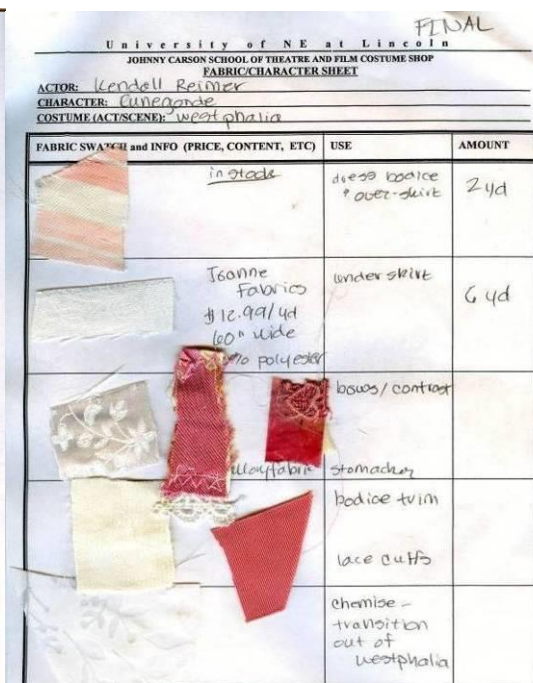 FINAL
University of NE at Lincoln
JOHNNY CARSON SCHOOL OF THEATRE AND FILM COSTUME SHOP
FABRIC/CHARACTER SHEET
ACTOR: Kendall Reimer
CHARACTER: Cunegonde
COSTUME (ACT/SCENE): Westphalia
FABRIC SWATCH and INFO (PRICE, CONTENT, ETC) USE AMOUNT
in stock
dress bodice
& over-skirt
2 yd
Joanne
Fabrics
$12.99/yd
60" wide
polyester
under skirt
6 yd
bows/contrast
stomacher
bodice trim
lace cuffs
chemise -
transition
out of
westphalia